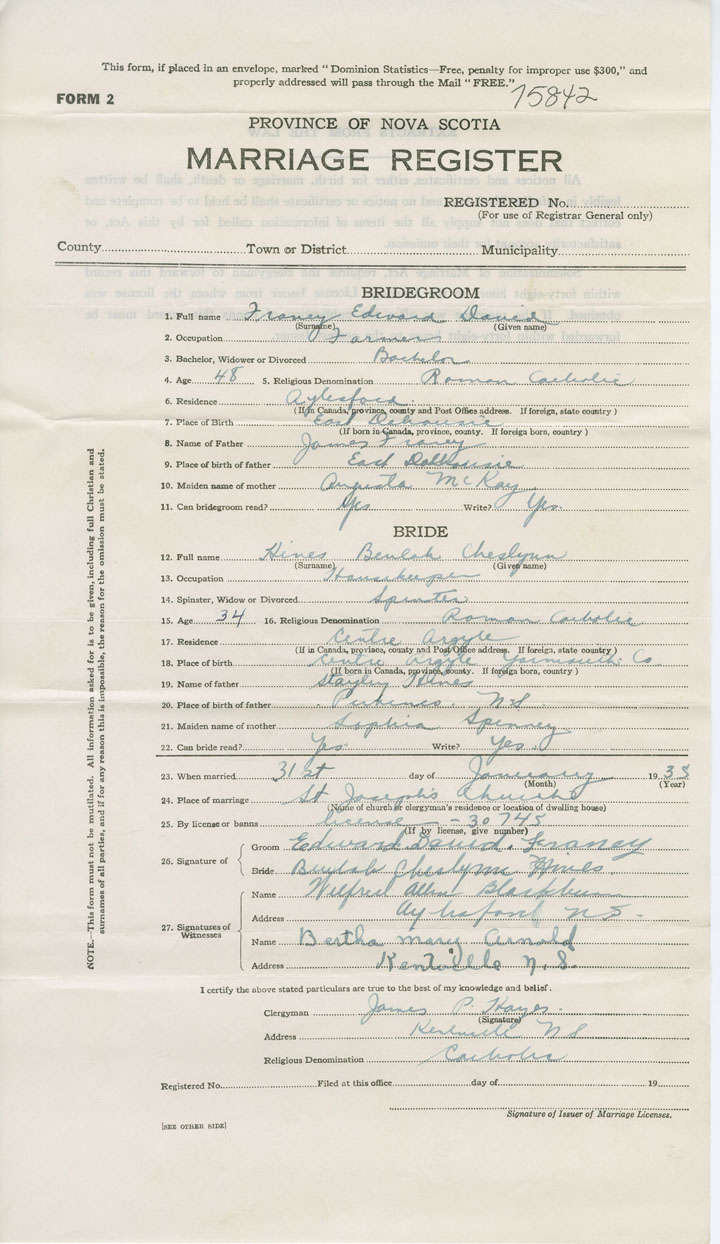 This form, if placed in an envelope, marked "Dominion Statistics—Free, penalty for improper use $300," and
properly addressed will pass through the Mail "FREE."
15842
FORM 2
PROVINCE OF NOVA SCOTIA
MARRIAGE REGISTER
REGISTERED No.
(For use of Registrar General only)
County Town or District Municipality
BRIDEGROOM
1. Full name Franey Edward David
(Surname) (Given name)
2. Occupation Farmer
3. Bachelor, Widower or Divorced Bachelor
4. Age 48 5. Religious Denomination Roman Catholic
6. Residence Aylesford
(If in Canada, province, county and Post Office address. If foreign, state country )
7. Place of Birth East Dalhousie
(If born in Canada, province, county. If foreign born, country )
8. Name of Father James Franey
9. Place of birth of father East Dalhousie
10. Maiden name of mother Augusta McKay
11. Can bridegroom read? Yes Write? Yes.
BRIDE
12. Full name Hines Beulah Cheslynn
(Surname) (Given name)
13. Occupation Housekeeper
14. Spinster, Widow or Divorced Spinster
15. Age 34 16. Religious Denomination Roman Catholic
17. Residence Centre Argyle
(If in Canada, province, county and Post Office address. If foreign, state country )
18. Place of birth Centre Argyle Yarmouth Co
(If born in Canada, province, county. If foreign born, country )
19. Name of father Stayley Hines
20. Place of birth of father N.S
21. Maiden name of mother Sophia Spinney
22. Can bride read? Yes. Write? Yes.
23. When married 31st day of January 1938
(Month) (Year)
24. Place of marriage St Joseph's Church
(Name of church or clergyman's residence or location of dwelling house)
25. By license or banns license - 30745
(If by license, give number)
26. Signature of
Groom Edward David. Franey
Bride Beulah Cheslynn Hines.
27. Signatures of Witnesses
Name Wilfred Allen Blackburn
Address Aylesford N S.
Name Bertha mary Arnold
Address Kentville N. S.
I certify the above stated particulars are true to the best of my knowledge and belief.
Clergyman James P. Hayes.
(Signature)
Address Kentville N S
Religious Denomination Catholic
Registered No. Filed at this office day of 19
Signature of Issuer of Marriage Licenses.
[SEE OTHER SIDE]
NOTE.—This form must not be mutilated. All information asked for is to be given, including full Christian and
surnames of all parties, and if for any reason this is impossible, the reason for the omission must be stated.